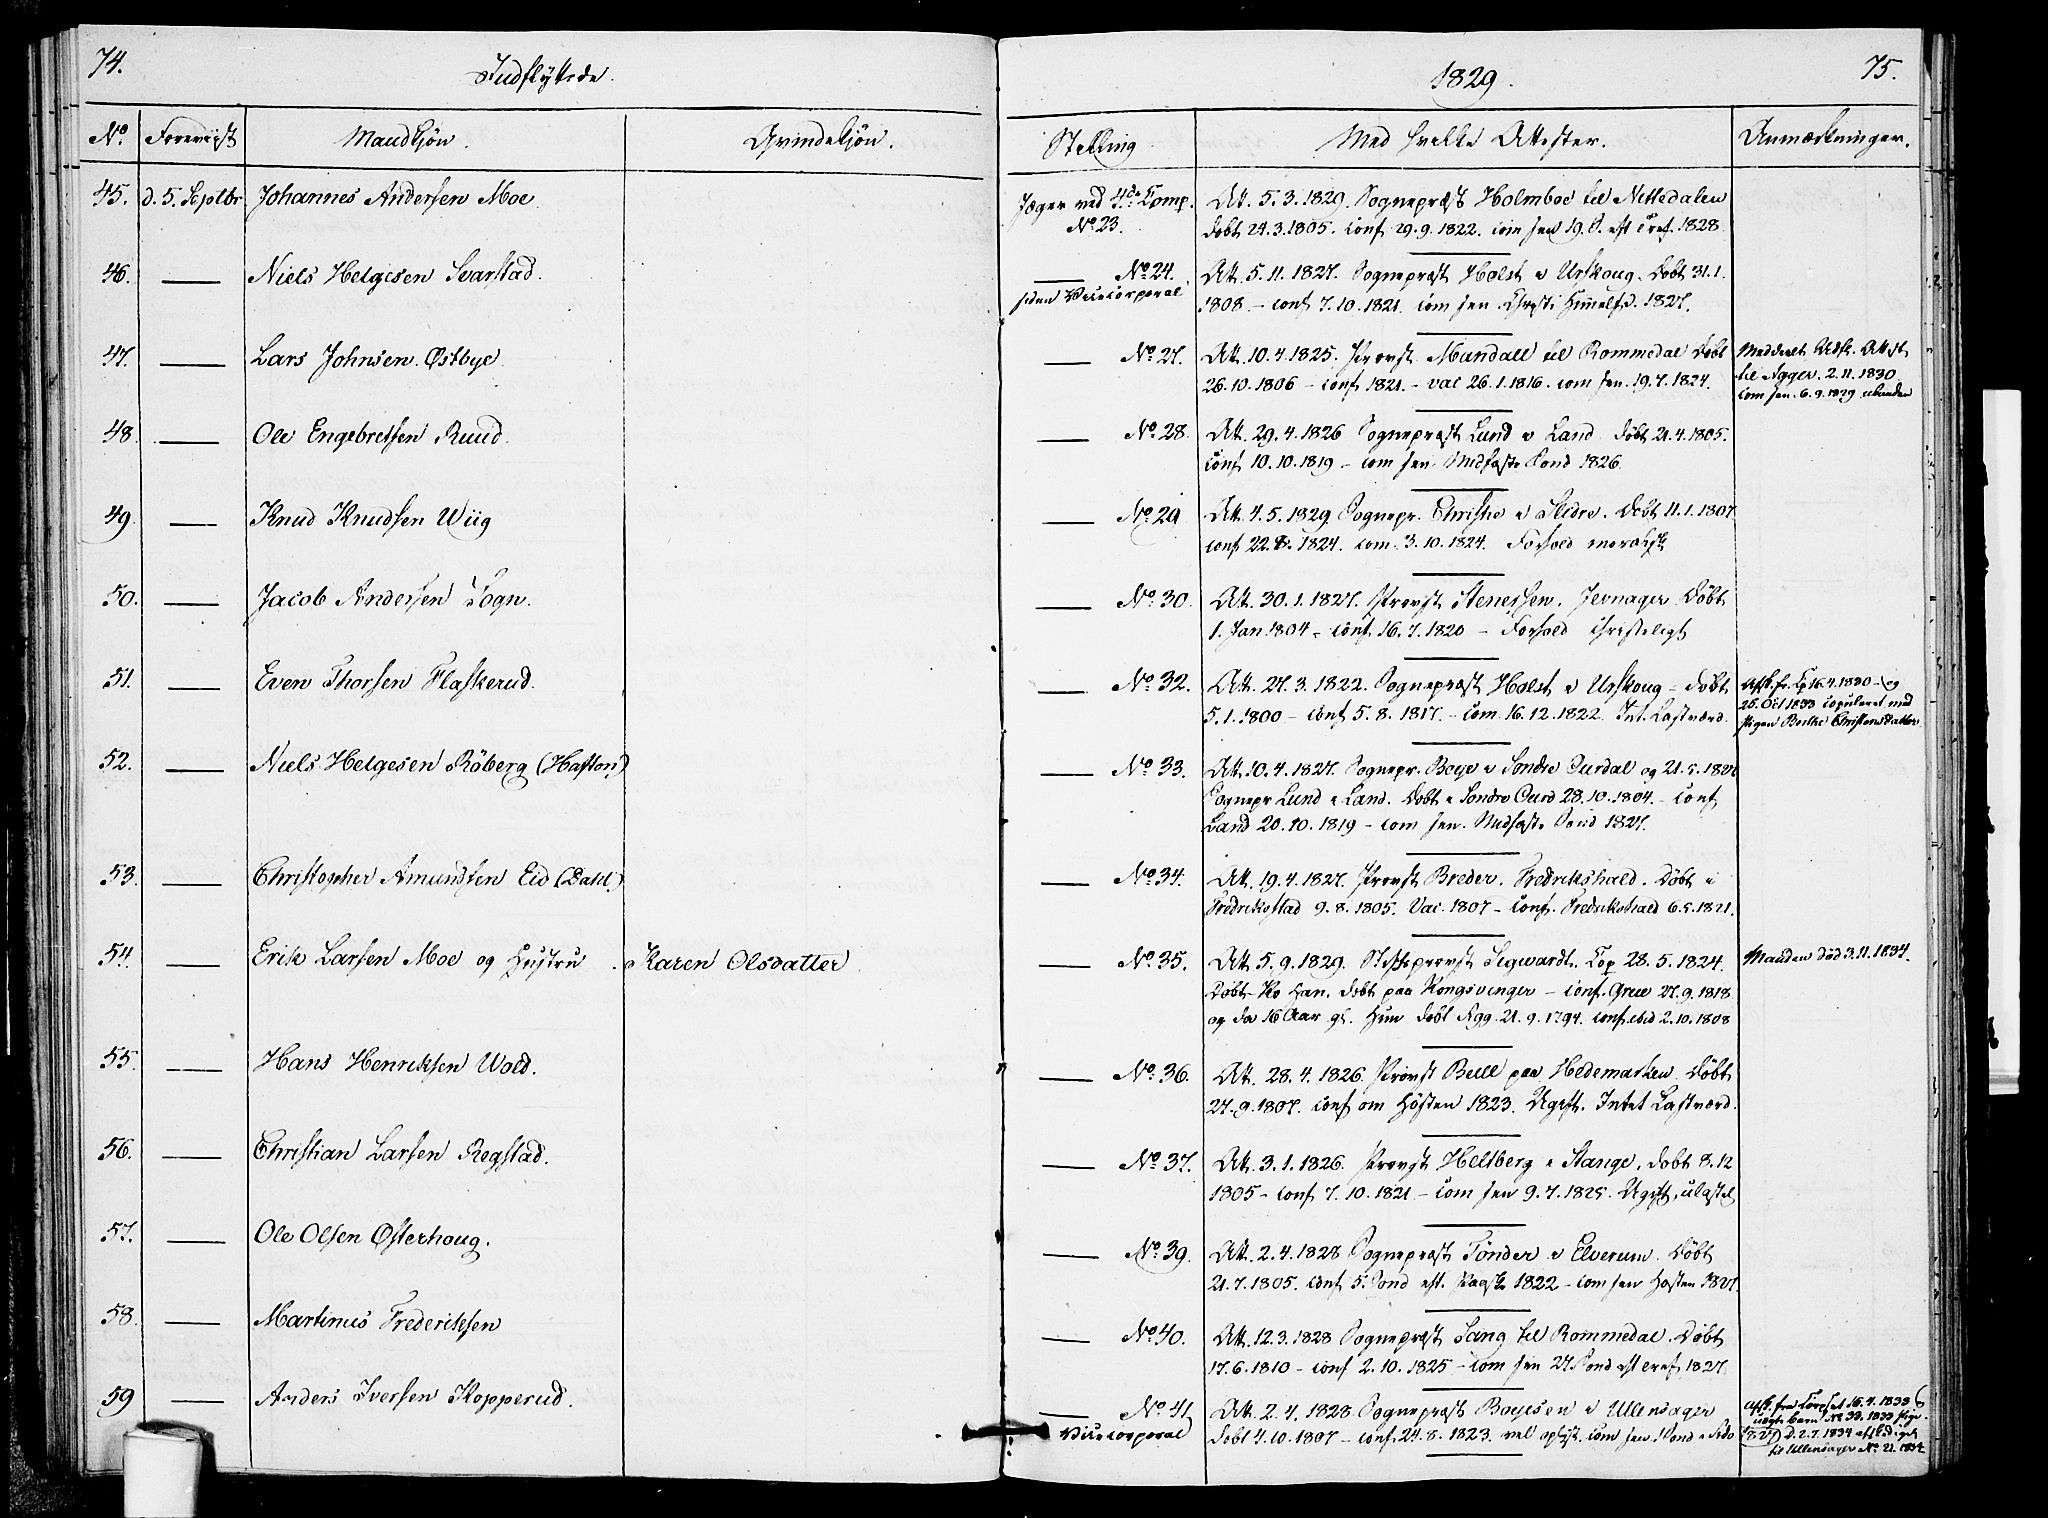 74.
Indflyttede.
No. Foreviist Mandkjøn. Qvindekjøn.
45. d. 5. Septbr Johannes Andersen Moe
46. Niels Helgesen Svarstad.
47. Lars Johnsen Østbye
48. Ole Engebretsen Ruud
49. Knud Knudsen Wiig
50. Jacob Andersen Sogn.
51. Even Thorsen Flaskerud.
52. Niels Helgesen Röberg (Hafton)
53. Christopher Amundsen Eid (Dahl.)
54. Erik Larsen Moe og Hustru Karen Olsdatter
55. Hans Henriksen Wold.
56. Christian Larsen Regstad.
57. Ole Olsen Østerhoug.
58. Martinus Frederiksen
59 Anders Iversen Kopperud.
1829.
75.
Stilling Med hvilke Attester. Anmærkninger.
Jæger ved 4de Comp. Att. 5.3.1829. Sognepræst Holmboe til Nittedalen
No. 23. døbt 24.3.1805. conf 29.9.1822. com sen 19. S. eft Tref. 1828
No. 24. Att. 5.11.1827. Sognepræst Holst i Urskoug. Døbt 31.1.
siden Vicecorporal 1808. – conf 7.10.1821. com sen Christi Himmelf.d. 1827.
No. 27. Att. 10.4.1825. Provst Mandall til Rommedal Døbt Meddeelt Udfl. Attest
26.10.1806 – conf 1821. – vac 26.1.1816. com sen. 19.7.1824. til Agger. 2.11.1830
com sen. 6.9.1829
No. 28. Att. 29.4.1826 Sognepræst Lund i Land døbt 21.4.1805.
conf 10.10.1819 – com sen. Midfaste Sond 1826.
No. 29 Att. 4.5.1829 Sognepr. Christie i Slidre. Døbt 11.1.1807
conf 22.8.1824. com. 3.10.1824. Forhold moralsk
No. 30. Att. 30.1.1827. Provst Stenersen. Jevnager Døbt
1. Jan 1804 – conf 16.7.1820 – Forhold christeligt
No. 32. Att. 27.3.1822. Sognepræst Holst i Urskoug – døbt
5.1.1800 – conf 5.8.1817. – com 16.12.1822. Int. Lastværd.
25. Oct 1833 copuleret med
Pigen Berthe Christensdatter
No. 33. Att. 10.4.1827. Sognepr. Boye i Søndre Ourdal og 21.5.1827
Sognepr Lund i Land. Døbt i Søndre Ourd 28.10.1804. – conf
Land 20.10.1819 – com sen. Midfaste Sond 1827.
No. 34. Att. 19.4.1827. Provst Breder. Fredrikshald. Døbt i
Fredrikstad 9.8.1805. Vac. 1807 – conf. Fredrikshald 6.5.1821.
No. 35. Att. 5.9.1829. Stiftsprovst Sigwardt. Cop 28.5.1824. Manden død 3.11.1834.
Han. døbt paa Kongsvinger – conf. Grue 27.9.1818
og da 16 Aar gl. Hun døbt Agg. 21.9.1794. conf. ibid 2.10.1808
No. 36. Att. 28.4.1826. Provst Bull paa Hedemarken. Døbt
27.9.1807. conf om Høsten 1823. Ugift. Intet Lastværd.
No. 37. Att. 3.1.1826. Provst Heltberg i Stange, døbt 8.12
1805 – conf 7.10.1821 – com sen 9.7.1825. Ugift,
No. 39. Att. 2.4.1828 Sognepræst Tønder i Elverum. Døbt
21.7.1805. conf 5. Sond eft. Paaske 1822 – com sen Høsten 1827.
No. 40. Att. 12.3.1828 Sognepræst Sang til Rommedal. Døbt
17.6.1810 – conf 2.10.1825 – com sen 27. Sond eft Tref. 1827.
No. 41 Att. 2.4.1828 Sognepræst Boyesen i Ullensager
Vicecorporal Døbt 4.10.1807 – conf 24.8.1823. vel oplyst. com sen
til Ullensager No. 21. 1834